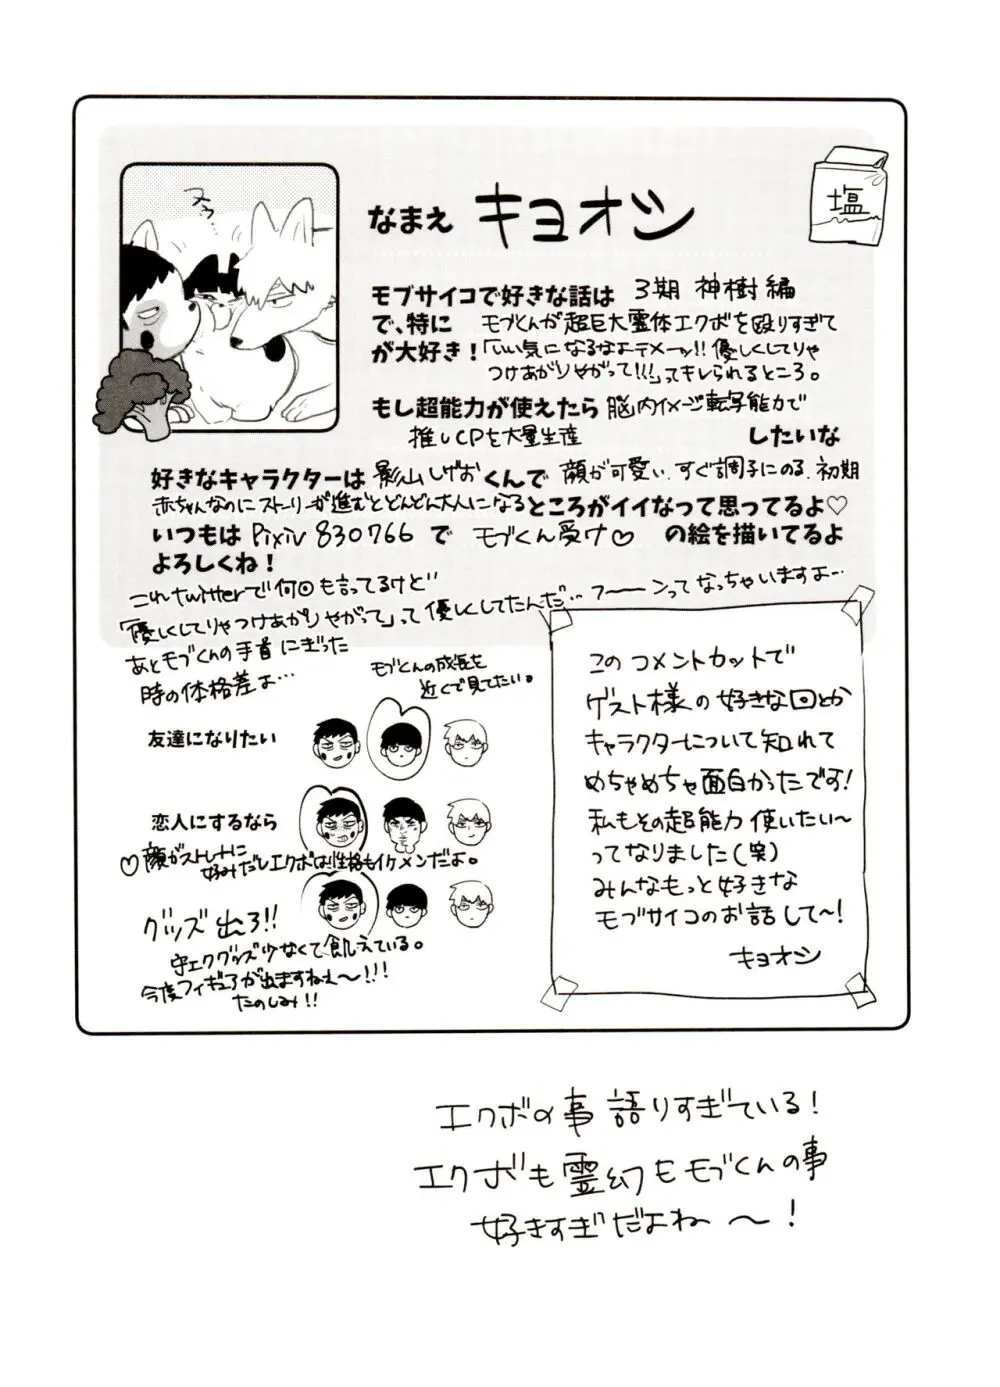 スゥ…
塩
なまえ キヨオシ
モブサイコで好きな話は 3期 神樹編
で、特に モブくんが超巨大霊体エクボを殴りすぎて
が大好き！「いい気になるなよテメーッ!!優しくしてりゃ
つけあがりやがって!!!」ってキレられるところ。
もし超能力が使えたら 脳内イメージ転写能力で
推しCPを大量生産 したいな
好きなキャラクターは 影山しげお くんで 顔が可愛い、すぐ調子にのる、初期
赤ちゃんなのにストーリーが進むとどんどん大人になる ところがイイなって思ってるよ♡
いつもは Pixiv 830766 で モブくん受け♡ の絵を描いてるよ
よろしくね！
これtwitterで何回も言ってるけど
「優しくしてりゃつけあがりやがって」って優しくしてたんだ…フーーンってなっちゃいますよ…
あとモブくんの手首にぎった
時の体格差よ…
モブくんの成長を
近くで見てたい。
友達になりたい
恋人にするなら
♡顔がストレートに
好みだしエクボは性格もイケメンだよ。
グッズ出ろ!!
守エクグッズ少なくて飢えている。
今度フィギュアが出ますねぇ〜!!!
たのしみ!!
このコメントカットで
ゲスト様の好きな回とか
キャラクターについて知れて
めちゃめちゃ面白かったです!
私もその超能力使いたい〜
ってなりました(笑)
みんなもっと好きな
モブサイコのお話して〜!
キヨオシ
エクボの事語りすぎている!
エクボも霊幻もモブくんの事
好きすぎだよね〜!